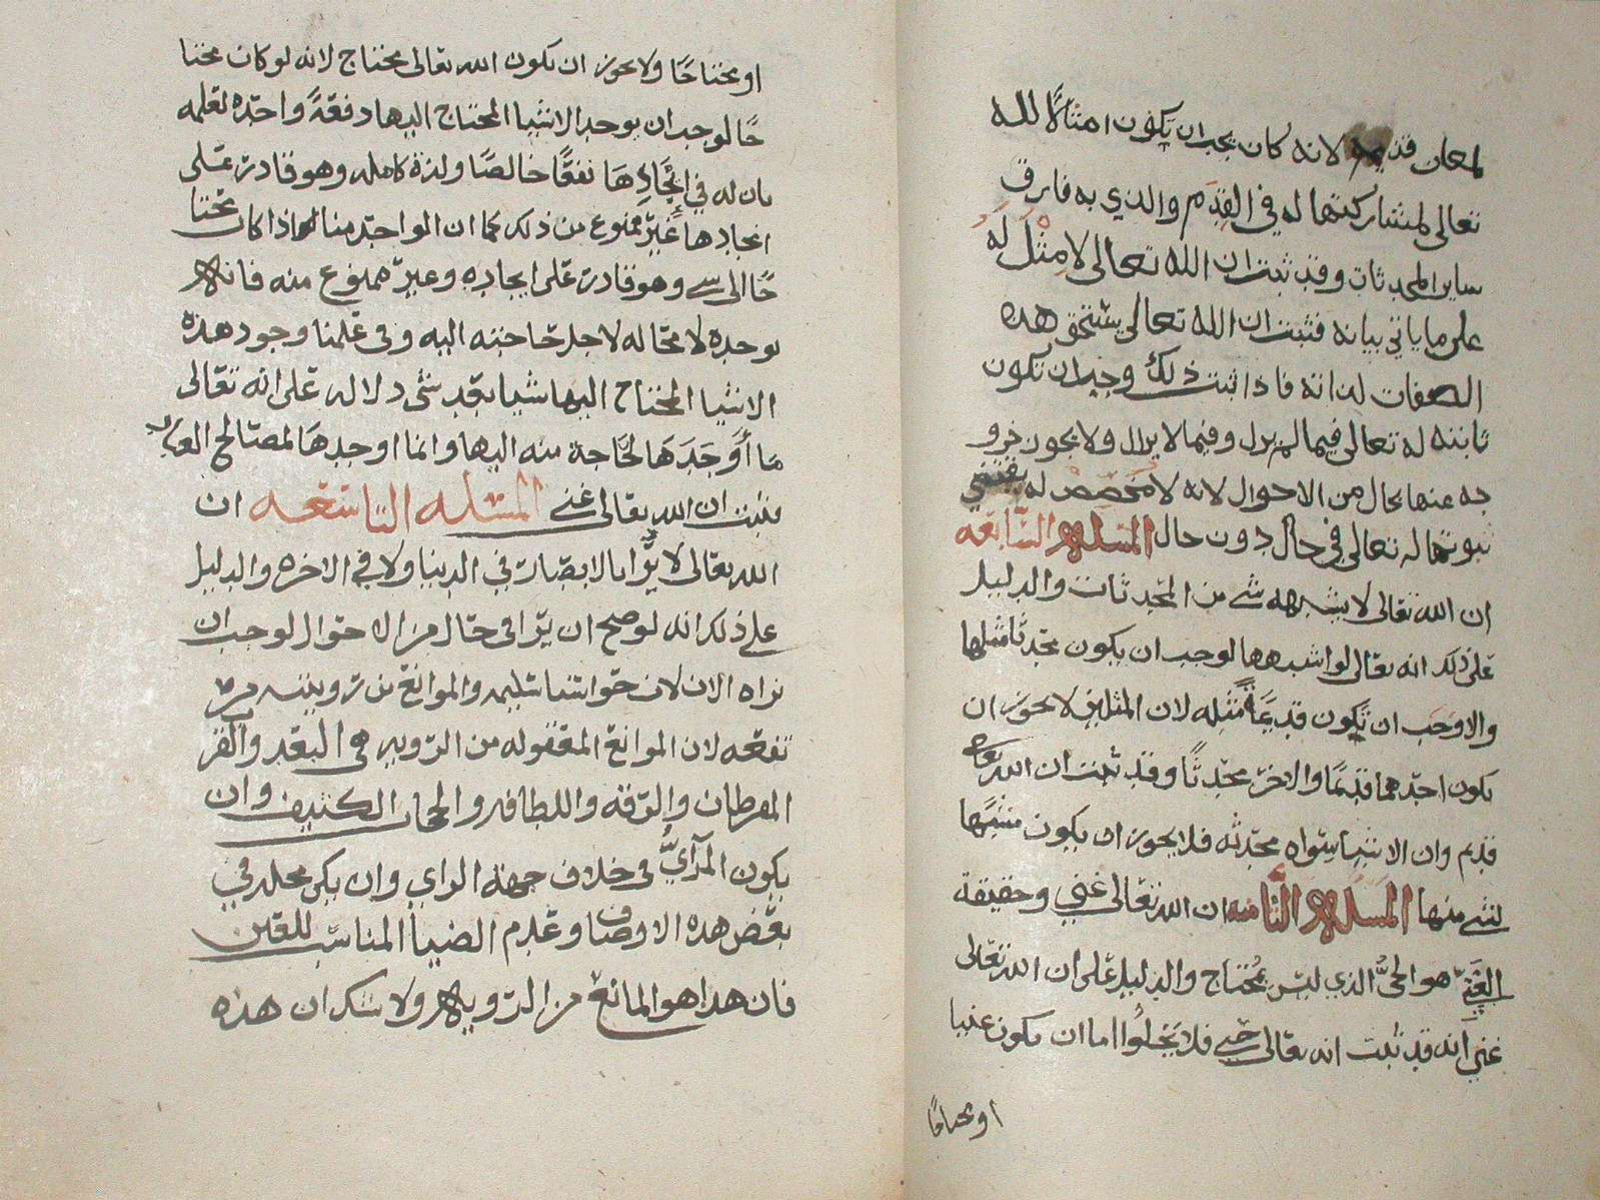 لمعان قديمه لانه كان يجب ان يكون امثالًا لله
تعالى لمشاركتها له في القِدَم والذي به فارق
ساير المحدثات وقد ثبت ان الله تعالى لا مِثْل لَهُ
على ما ياتي بيانه فثبت ان الله تعالى يستحق هذه
الصفات لذاته فاذا ثبت ذلك وجب ان تكون
ثابته له تعالى فيما لم يزل وفيما لا يزال ولا يجوز خرو
جه عنها بحال من الاحوال لانه لا مخصص له يقتضي
ثبوتها له تعالى في حال دون حال المسله السابعه
ان الله تعالى لا يشبهه شي من المحدثات والدليل
على ذلك انه تعالى لو اشبهها لوجب ان يكون محدثًا مثلها
والا وجب ان تكون قديمةً مثله لان المثلين لا يجوز ان
يكون احدهما قديمًا والاخر محدثًا وقد ثبت ان الله تعالى
قديم وان الاشيا سواه محدثه فلا يجوز ان يكون مشبهًا
لشي منها المسله الثامنه ان الله تعالى غني وحقيقة
الغَنِيّ هو الحيُّ الذي ليس بمُحتاج والدليل على ان الله تعالى
غني انه قد ثبت انه تعالى حي فلا يخلُوا اما ان يكون غنيا
او محتاجًا
او محتاجًا ولا يجوز ان يكون الله تعالى محتاج لانه لو كان محتا
جًا لوجب ان يوجد الاشيا المحتاج اليها دفعةً واحده لعلمه
بان له في ايجادِهَا نفعًا خالصًا ولذة كامله وهو قادر على
ايجادها غير ممنوع من ذلك كما ان الواحد منا اذا كان محتا
جًا الى شي وهو قادر على ايجاده وغير ممنوع منه فانه
يوجده لا محاله لاجل حاجته اليه وفي علمنا وجود هذه
الاشيا المحتاج اليها شيا بعد شي دلاله على انه تعالى
مَا أَوْجَدَهَا لحَاجة منه اليها وانما اوجدهَا لمصالح العباد
فثبت ان الله تعالى غني المسئله التاسعه ان
الله تعالى لا يُرا بالابصار في الدنيا ولا في الاخره والدليل
على ذلك انه لو صح ان يرا في حال من الاحوال لوجب ان
نراه الان لان حواسنا سليمه والموانع من رويته مر
تفعه لان الموانع المعقوله من الرويه هي البعد والقرب
المفرطان والرقه واللطافه والحجاب الكثيف وان
يكون المرآيُّ في خلاف جهة الراي وان يكن محله في
بعض هذه الاوصاف وعدم الضيا المناسب للعين
فان هذا هو المانع من الرويه ولا شك ان هذه